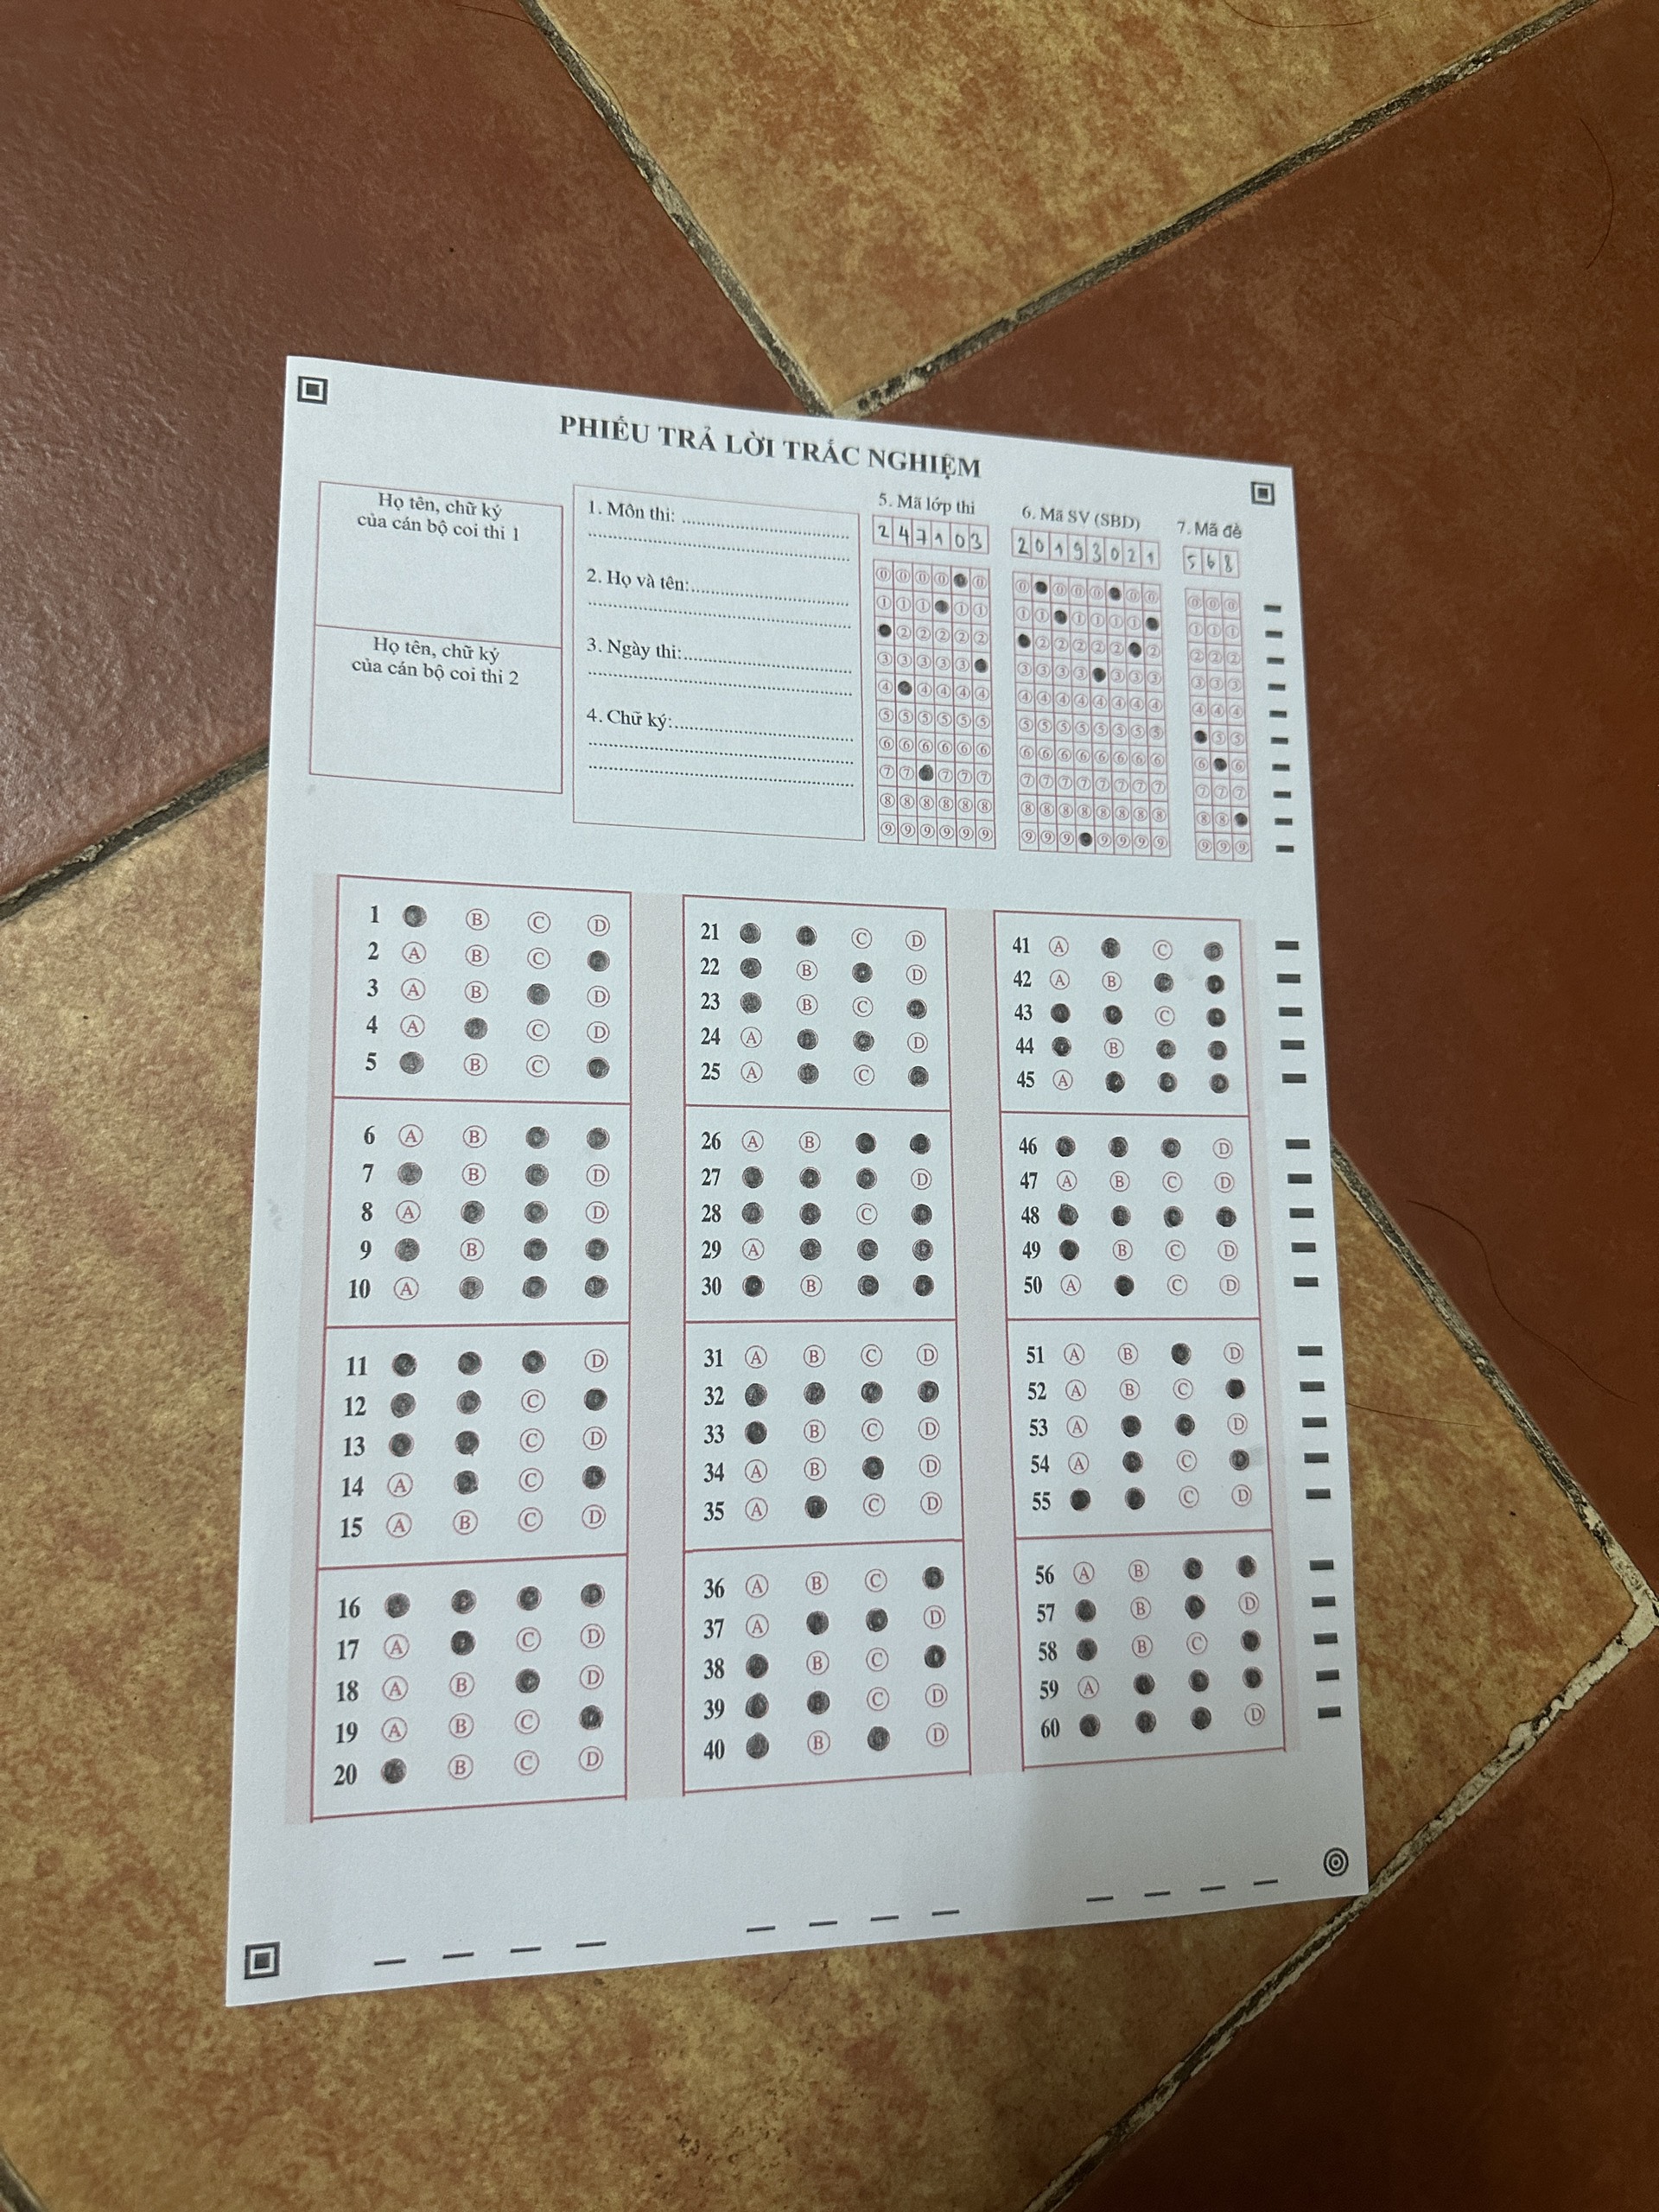 PHIẾU TRẢ LỜI TRẮC NGHIỆM
Họ tên, chữ ký
của cán bộ coi thi 1
Họ tên, chữ ký
của cán bộ coi thi 2
1. Môn thi:
2. Họ và tên:
3. Ngày thi:
4. Chữ ký:
5. Mã lớp thi
2 4 7 1 0 3
0 0 0 0 0
1 1 1 1 1
2 2 2 2 2
3 3 3 3 3
4 4 4 4 4
5 5 5 5 5 5
6 6 6 6 6 6
7 7 7 7 7
8 8 8 8 8 8
9 9 9 9 9 9
6. Mã SV (SBD)
2 0 1 9 3 0 2 1
0 0 0 0 0 0
1 1 1 1 1 1
2 2 2 2 2 2
3 3 3 3 3 3 3
4 4 4 4 4 4 4 4
5 5 5 5 5 5 5 5
6 6 6 6 6 6 6 6
7 7 7 7 7 7 7 7
8 8 8 8 8 8 8 8
9 9 9 9 9 9 9
7. Mã đề
5 6 8
0 0 0
1 1 1
2 2 2
3 3 3
4 4 4
5 5
6 6
7 7 7
8 8
9 9 9
1 B C D
2 A B C
3 A B D
4 A C D
5 B C
6 A B
7 B D
8 A D
9 B
10 A
11 D
12 C
13 C D
14 A C
15 A B C D
16
17 A C D
18 A B D
19 A B C
20 B C D
21 C D
22 B D
23 B C
24 A D
25 A C
26 A B
27 D
28 C
29 A
30 B
31 A B C D
32
33 B C D
34 A B D
35 A C D
36 A B C
37 A D
38 B C
39 C D
40 B D
41 A C
42 A B
43 C
44 B
45 A
46 D
47 A B C D
48
49 B C D
50 A C D
51 A B D
52 A B C
53 A D
54 A C
55 C D
56 A B
57 B D
58 B C
59 A
60 D